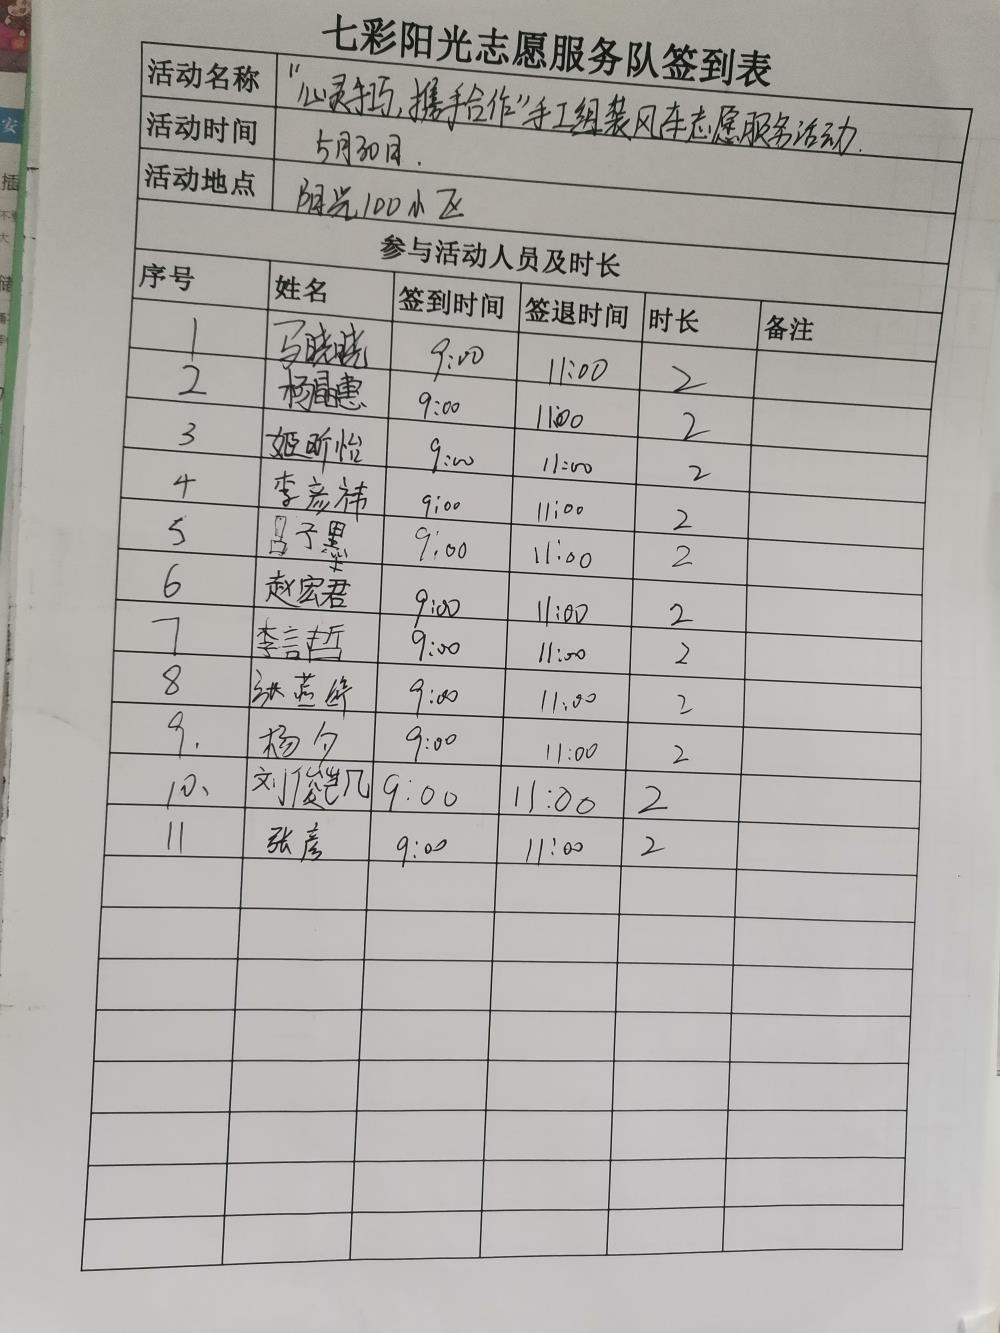 七彩阳光志愿服务队签到表
活动名称 "心灵手巧、携手合作"手工组装风车志愿服务活动.
活动时间 5月30日.
活动地点 阳光100小区
参与活动人员及时长
序号 姓名 签到时间 签退时间 时长 备注
1 马晓晓 9:00 11:00 2
2 杨晶惠 9:00 11:00 2
3 姬昕怡 9:00 11:00 2
4 李彦祎 9:00 11:00 2
5 吕子墨 9:00 11:00 2
6 赵宏君 9:00 11:00 2
7 李言哲 9:00 11:00 2
8 9:00 11:00 2
9. 杨夕 9:00 11:00 2
10、 刘俊凯 9:00 11:00 2
11 张彦 9:00 11:00 2
安
插
大
储